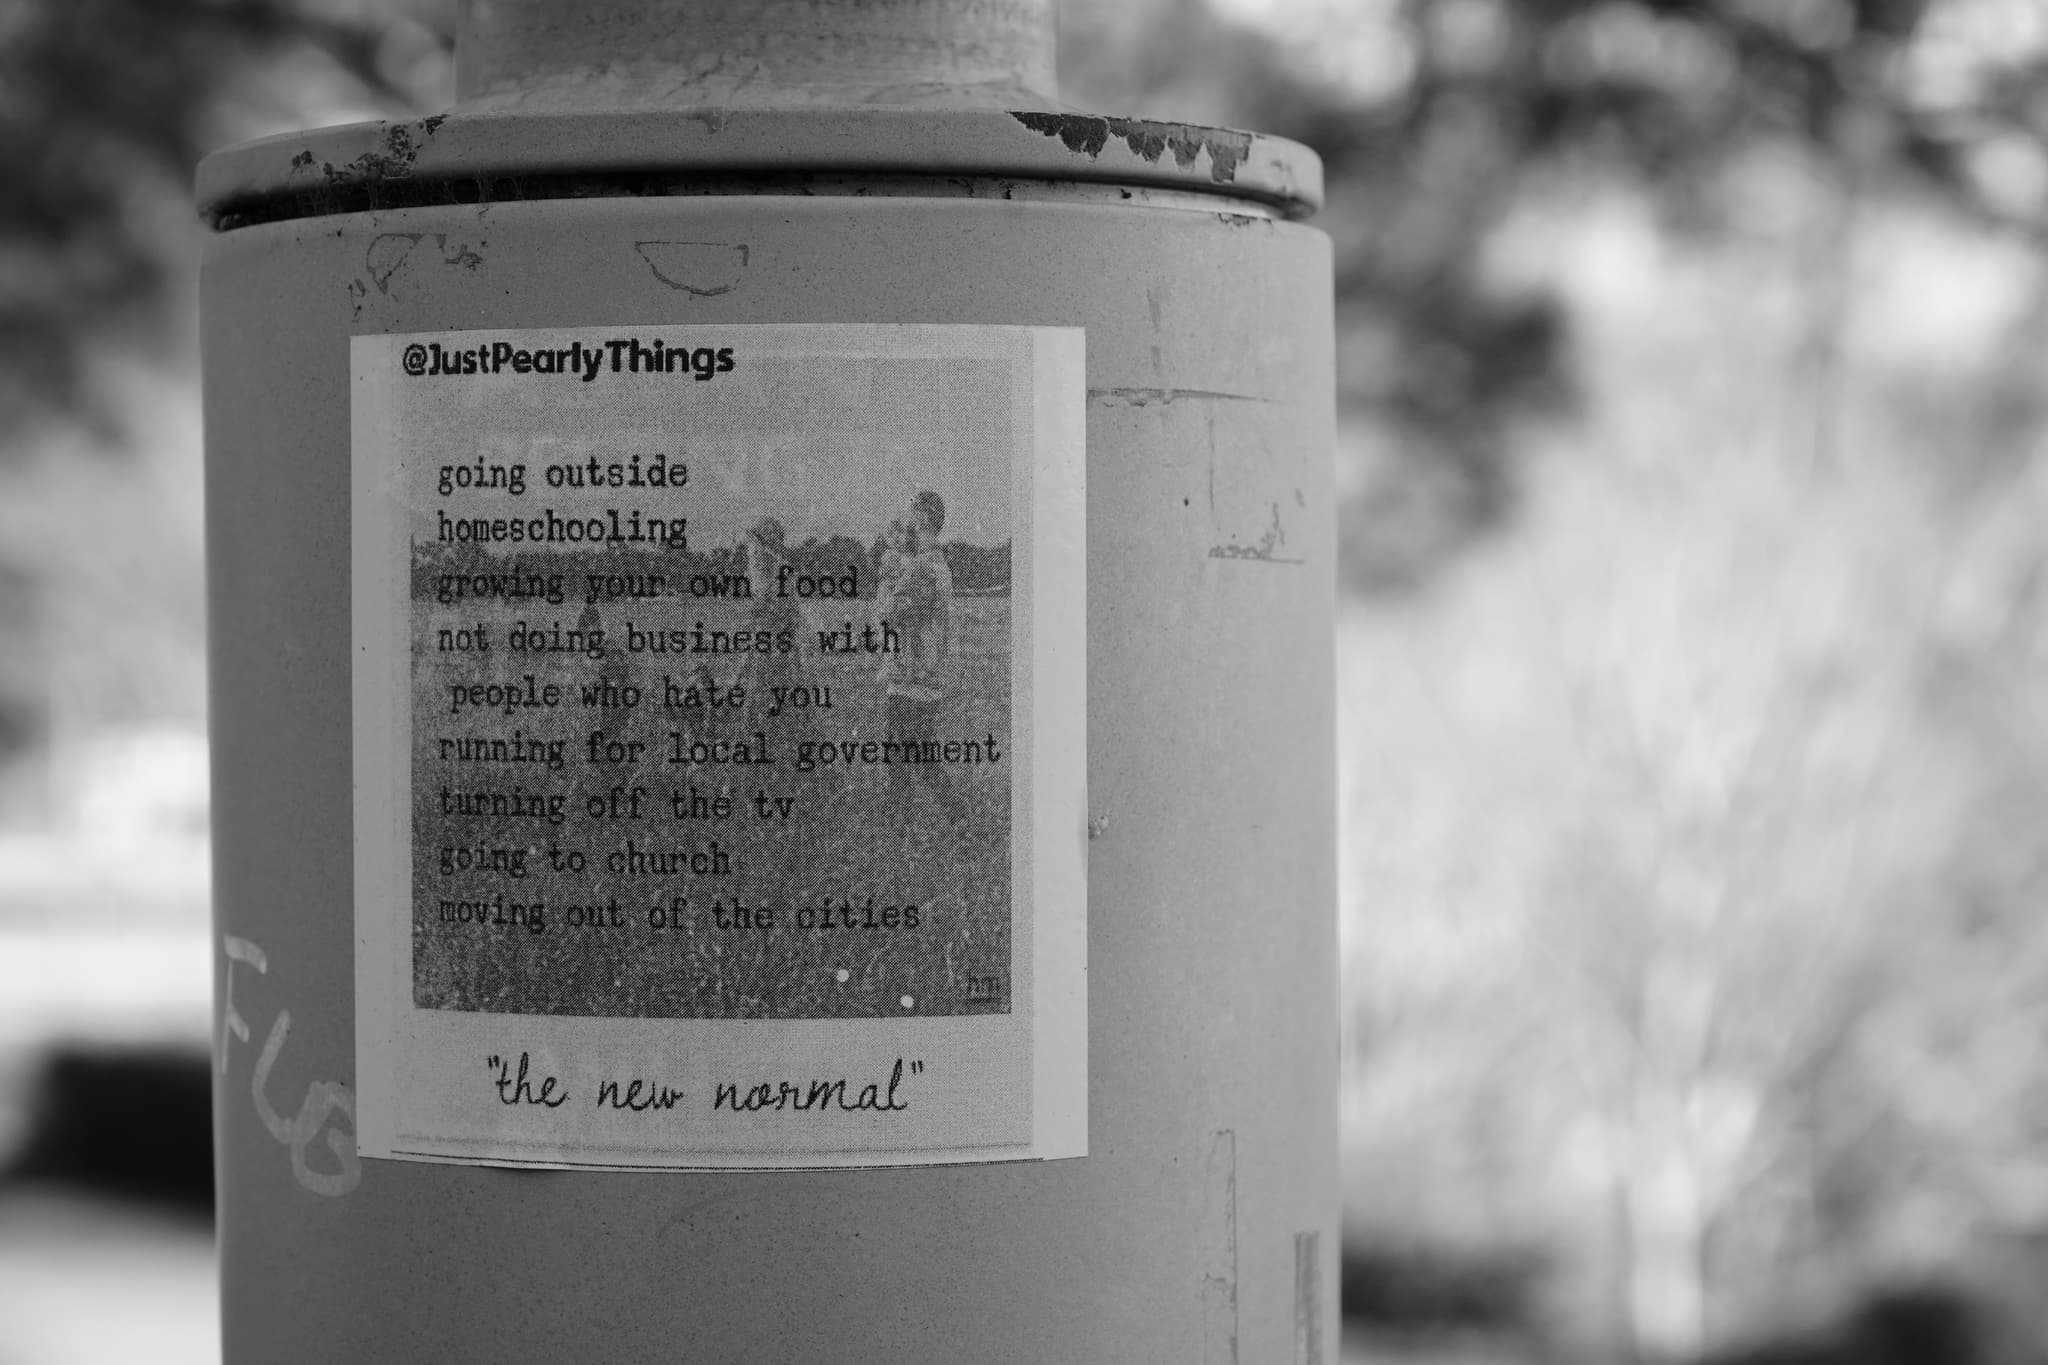 @JustPearlyThings
going outside
homeschooling
growing your own food
not doing business with
people who hate you
running for local government
turning off the tv
going to church
moving out of the cities
hm
"the new normal"